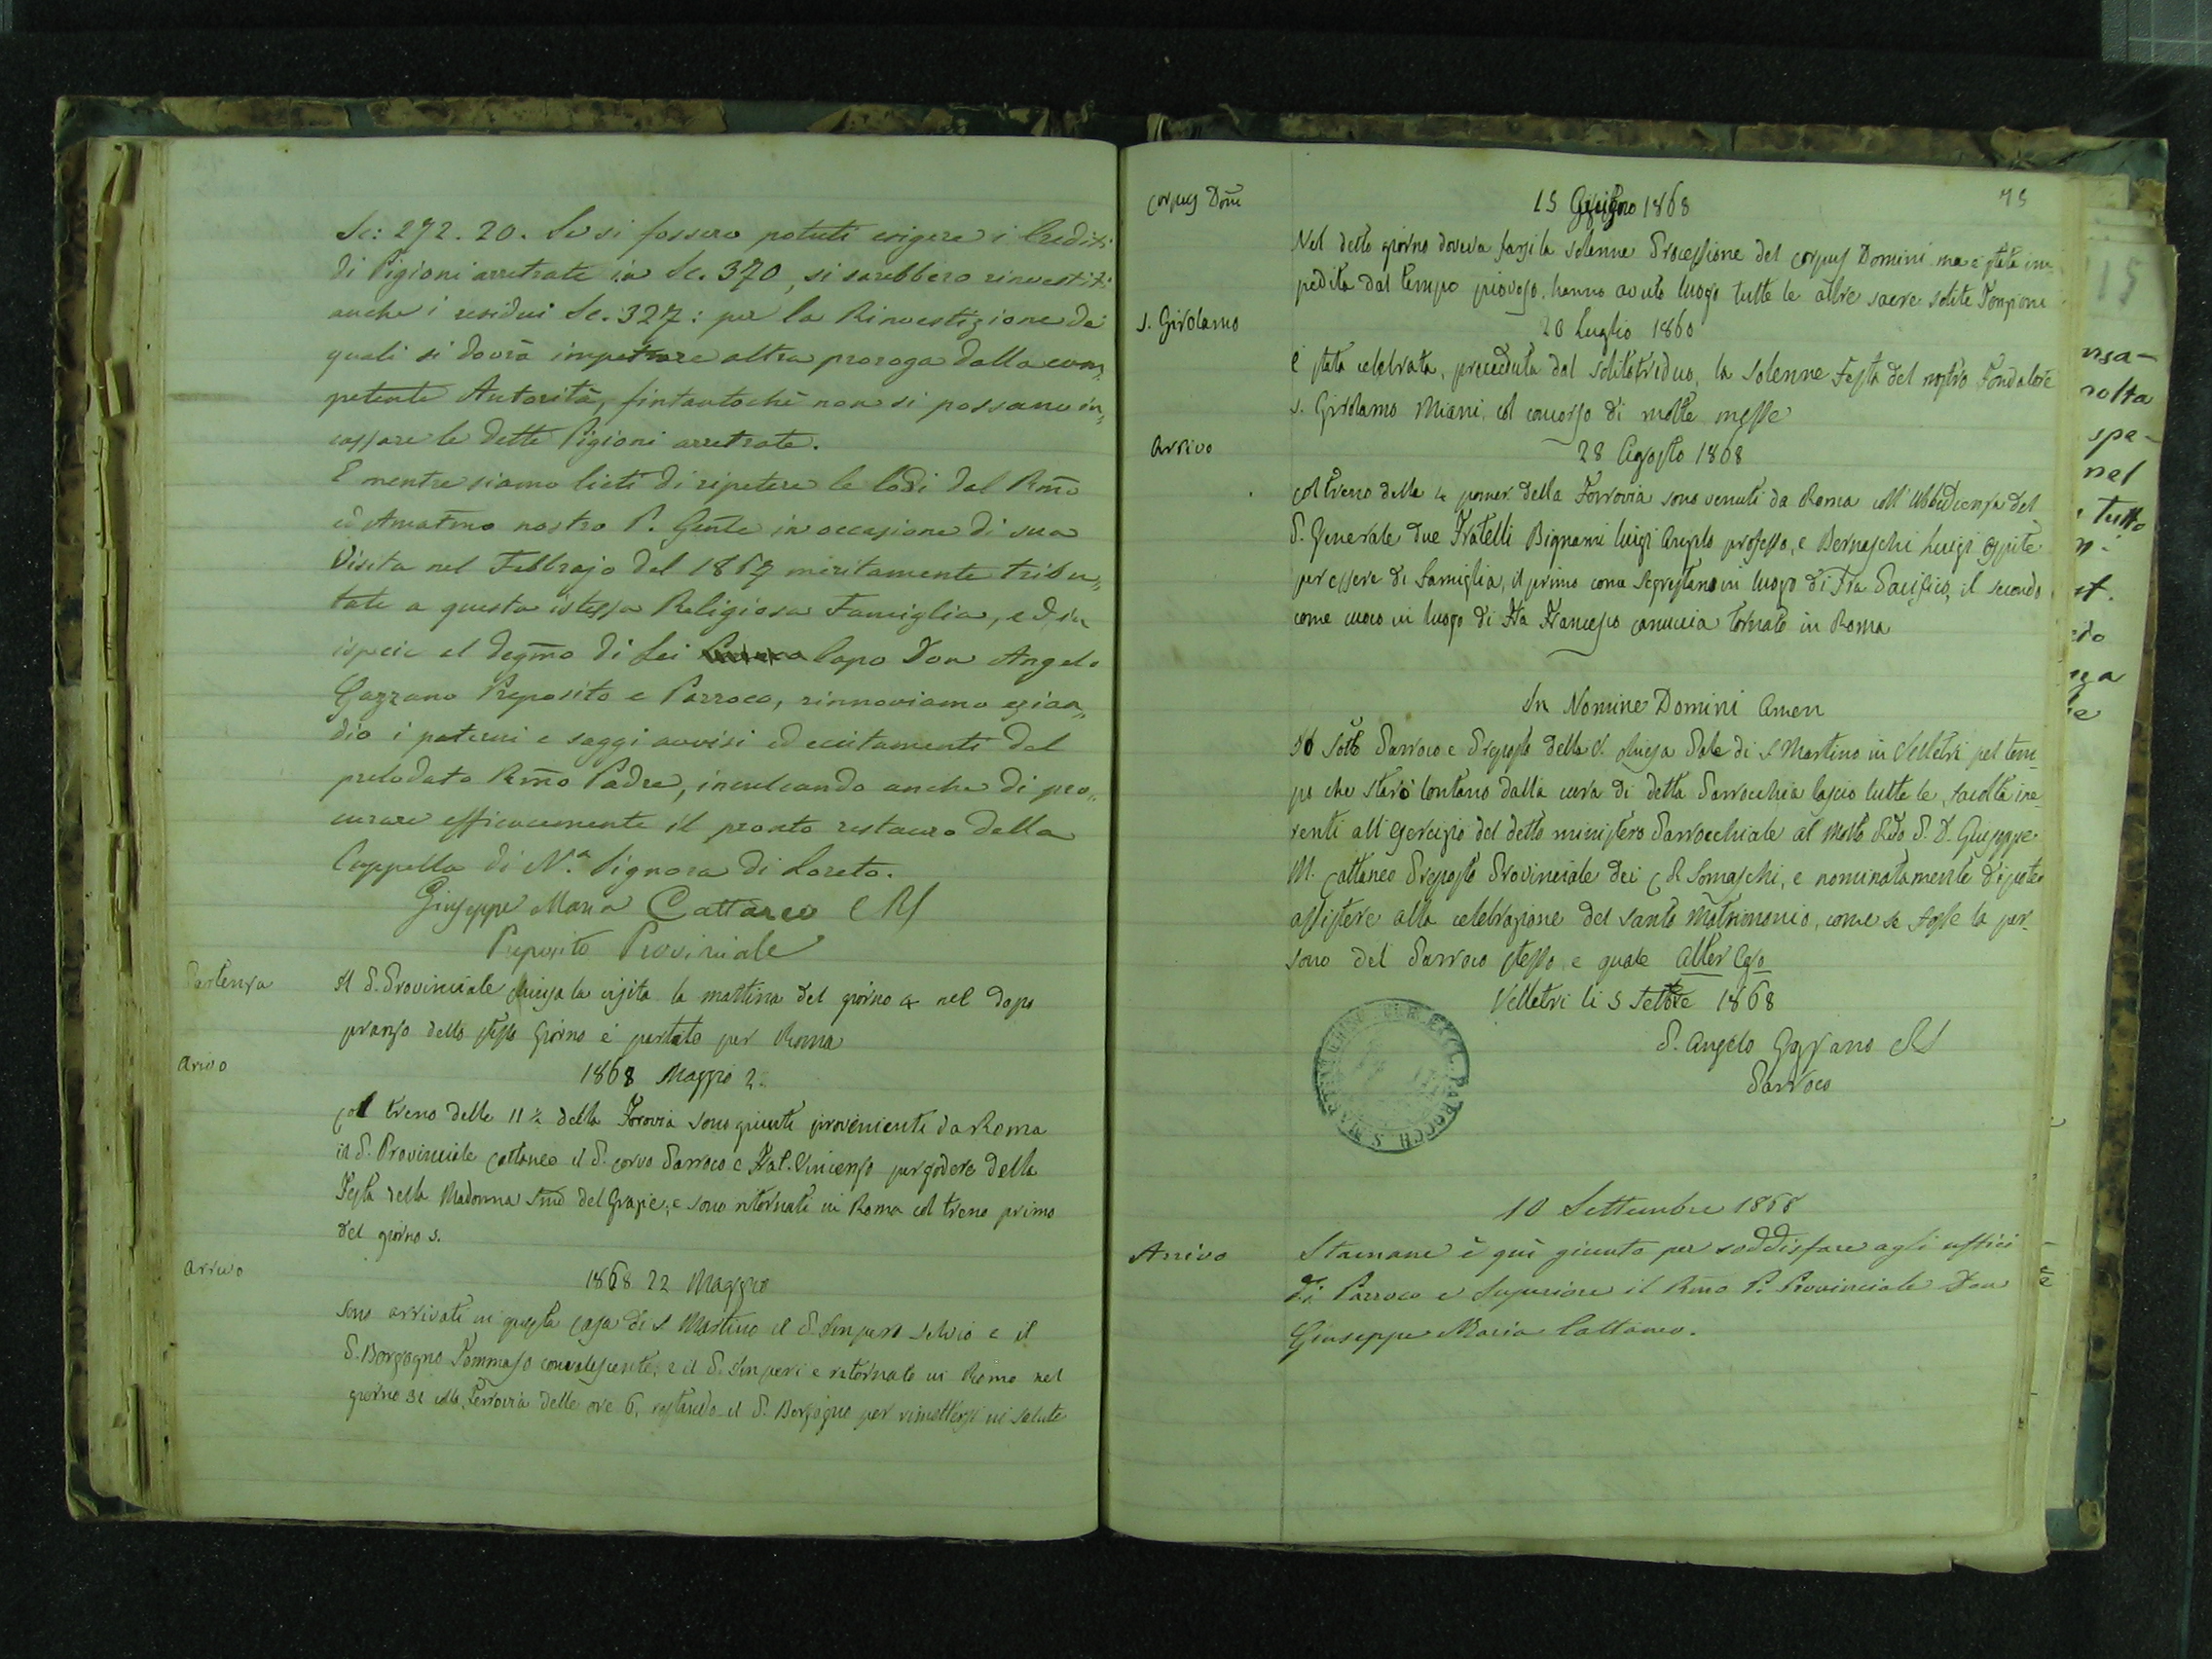 Sc: 272.20. Se si fossero potuti esigere i Crediti
di Pigioni arretrate in Sc. 370, si sarebbero rinvestiti
anche i residui Sc. 327: per la Rinvestizione dei
quali si dovrà impetrare altra proroga dalla com„
petente Autorità, fintantochè non si possano in„
cassare le dette Pigioni arretrate.
E mentre siamo lieti di ripetere le lodi dal Rmo
ed Amatmo nostro P. Gente in occasione di sua
Visita nel Febbrajo del 1867 meritamente tribu„
tate a questa istessa Religiosa Famiglia, ed in
ispecie al degmo di Lei Capo Don Angelo
Gazzano Preposito e Parroco, rinnoviamo ezian„
dio i paterni e saggi avvisi ed eccitamenti del
prelodato Rmo Padre, inculcando anche di pro„
curare efficacemente il pronto restauro della
Cappella di N.a Signora di Loreto.
Giuseppe Maria Cattaneo CRS
Preposito Provinciale
Partenza
Il P. Provinciale chiusa la visita la mattina del giorno 4 nel dopo
pranzo dello stesso Giorno è partito per Roma
Arivo
1868 Maggio 2.
Col treno delle 11 ½ della Forovia sono giunti provenienti da Roma
il P. Provinciale Cattaneo il P. Corvo Parroco e Frat. Vincenzo per godere della
Festa della Madonna Sma del Grazie, e sono ritornati in Roma col treno primo
del giorno 5.
Arrivo
1868 22 Maggio
Sono arrivati in questa Casa di S Martino il P. Imperi Silvio e il
P. Borgogno Tommaso convalescente, e il P. Imperi e ritornato in Roma nel
giorno 31 colla Ferrovia delle ore 6, restando il P. Borgogno per rimettersi in salute
75
Corpus Dom̃
15 Giugno 1868
Nel detto giorno doveva farsi la solenne Processione del Corpus Domini ma è stata im
pedita dal tempo piovoso. hanno avuto luogo tutte le altre sacre solite Fonzioni
S. Girolamo
20 Luglio 1860
È stata celebrata, preceduta dal solito triduo, la solenne Festa del nostro Fondatore
S. Girolamo Miani, col concorso di molte messe
Arrivo
28 Agosto 1868
Col treno delle 4 pomer. della Forrovia sono venuti da Roma coll'Ubbidienza del
P. Generale due Fratelli Bignami Luigi Angelo professo, e Bernaschi Luigi Ospite
per essere di Famiglia, il primo come Segrestano in luogo di Fra Pacifico, il secondo
come cuoco in luogo di Fra Francesco Canuccia tornato in Roma
In Nomine Domini Amen
Io Sotto Parroco e Preposto della V. Chiesa Pale di S. Martino in Velletri pel tem
po che starò lontano dalla cura di detta Parrocchia lascio tutte le facoltà ine
renti all'esercizio del detto ministero Parrocchiale al Molto Rdo P. D. Giuseppe
M. Cattaneo Preposto Provinciale dei C R Somaschi, e nominatamente di poter
assistere alla celebrazione del Santo Matrimonio, come se fosse la per
sona del Parroco stesso, e quale Alter Ego
Velletri li 5 Settbre 1868
P. Angelo Gazzano CRS
Parroco
10 Settembre 1868
Arrivo
Stamane è quì giunto per soddisfare agli uffici
di Parroco e Superiore il Rmo P. Provinciale Don
Giuseppe Maria Cattaneo.
15
nsa-
nolta
spe-
nel
tutto